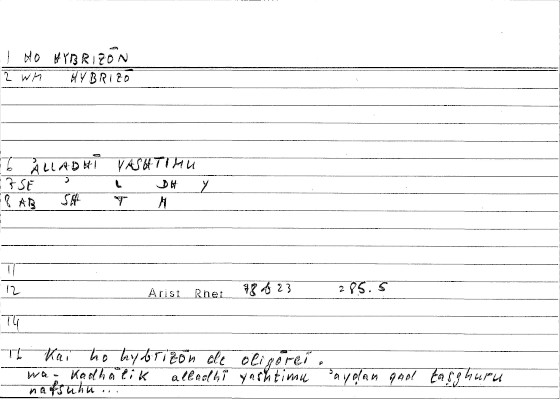 1 HO HYBRIZŌN
2 WM HYBRIZŌ
6 ʾALLADHĪ YASHTIMU
7 SE ʾ L DH Y
8 AB SH T M
11
12 Arist Rhet 78 b 23 = 85.5
14
Kai ho hybrizōn de oligōreī.
wa-Kadhālik alladhī yashtimu ʾayḍan qad taṣghuru
nafsuhu...